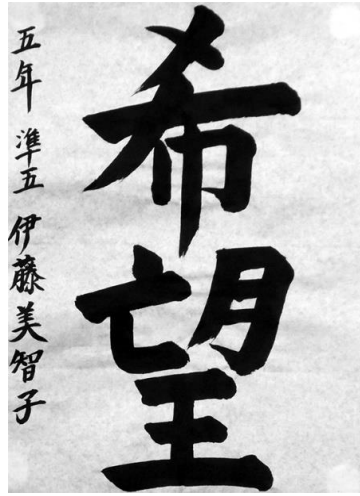 希望
五年 準五 伊藤美智子